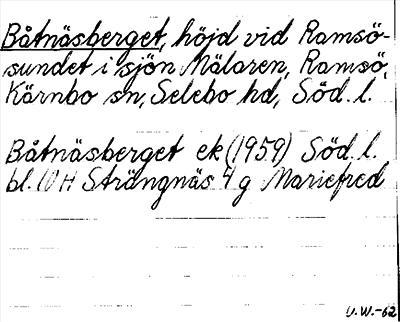 Båtnäsberget, höjd vid Ramsö-
sundet i sjön Mälaren, Ramsö,
Kärnbo sn, Selebo hd, Söd. l.
Båtnäsberget ek (1959) Söd. l.
bl. 10 H Strängnäs 4 g Mariefred
V.W.-62